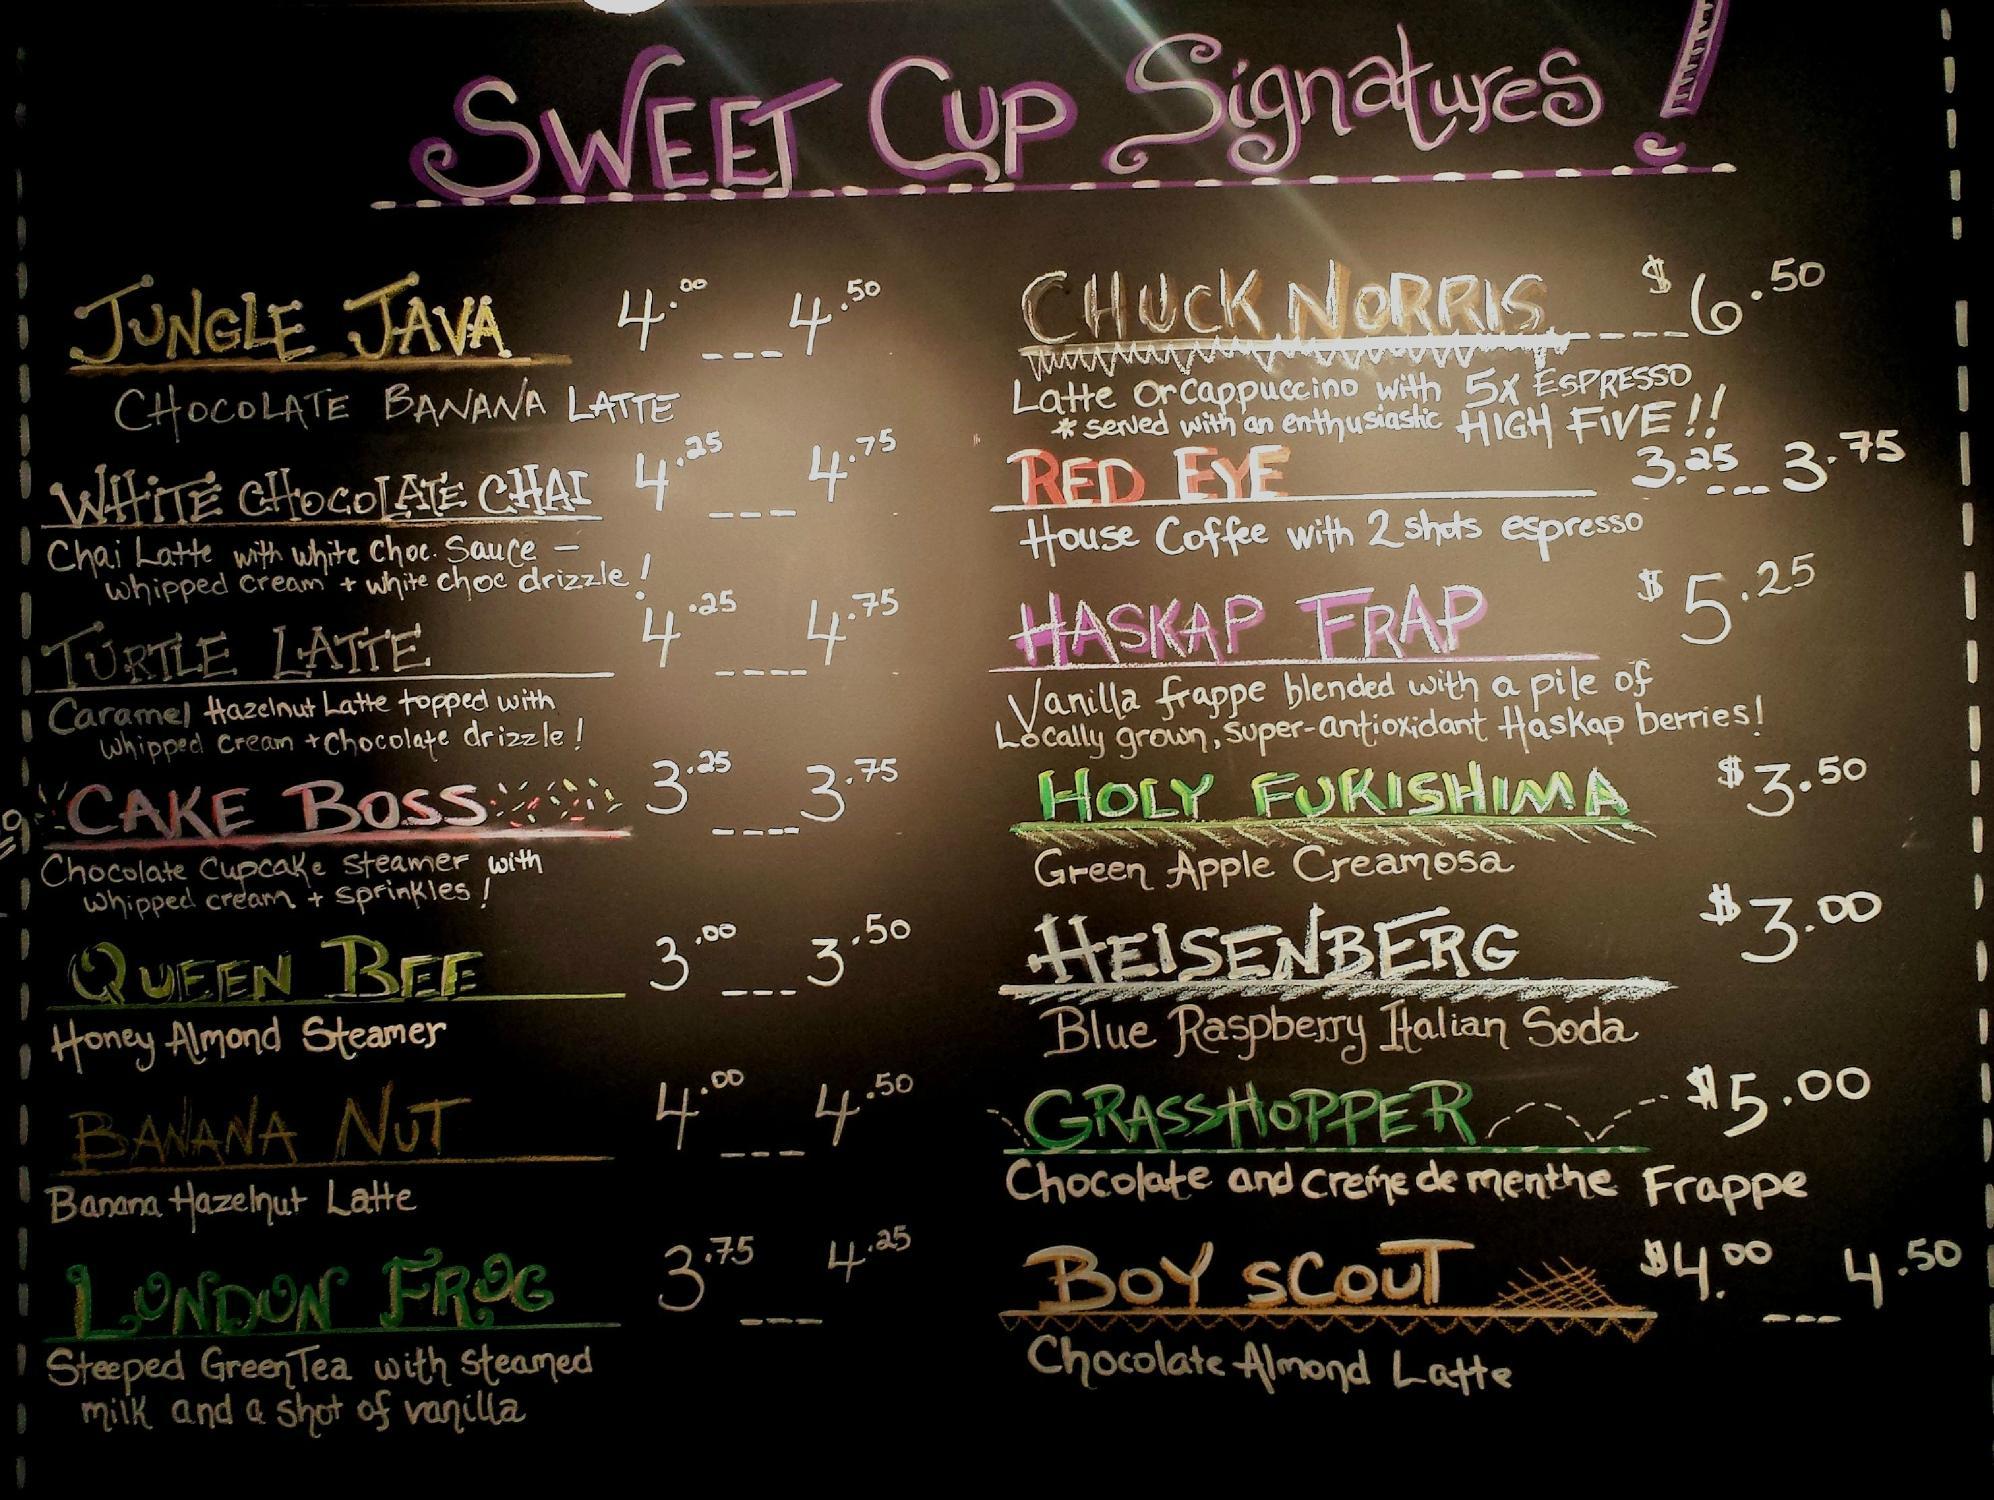 SWEET CUP Signatures!
JUNGLE JAVA 4.00 --- 4.50
CHOCOLATE BANANA LATTE
WHITE CHOCOLATE CHAI 4.25 --- 4.75
Chai Latte with white choc. Sauce -
whipped cream + white choc drizzle!
TURTLE LATTE 4.25 ---- 4.75
Caramel Hazelnut Latte topped with
whipped cream + Chocolate drizzle!
CAKE BOSS 3.25 ---- 3.75
Chocolate Cupcake Steamer with
whipped cream + sprinkles!
QUEEN BEE 3.00 --- 3.50
Honey Almond Steamer
BANANA NUT 4.00 --- 4.50
Banana Hazelnut Latte
LONDON FROG 3.75 --- 4.25
Steeped Green Tea with steamed
milk and a shot of vanilla
CHUCK NORRIS ---- $6.50
Latte or Cappuccino with 5X ESPRESSO
* served with an enthusiastic HIGH FIVE!!
RED EYE 3.25 --- 3.75
House Coffee with 2 shots espresso
HASKAP FRAP $5.25
Vanilla frappe blended with a pile of
Locally grown, super-antioxidant Haskap berries!
HOLY FUKISHIMA $3.50
Green Apple Creamosa
HEISENBERG $3.00
Blue Raspberry Italian Soda
GRASSHOPPER $5.00
Chocolate and creme de menthe Frappe
BOY SCOUT $4.00 --- 4.50
Chocolate Almond Latte